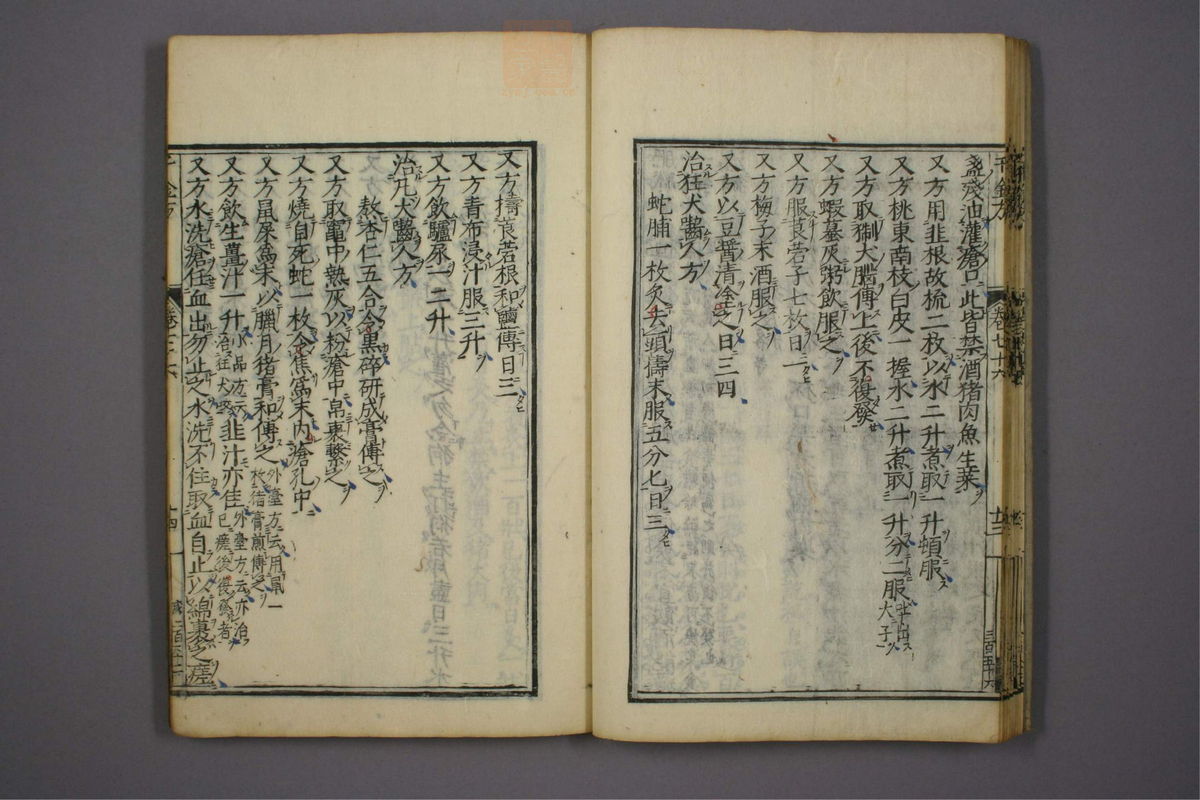 盞殘油灌瘡口此皆禁酒猪肉魚生菜
又方用韭根故梳二枚以水二升煮取一升頓服
又方桃東南枝白皮一握水二升煮取一升分二服吐出犬子
又方取猘犬腦傅上後不復發
又方蝦蟇灰粥飲服之
又方服莨菪子七枚日三
又方梅子末酒服之
又方以豆醬清塗之日三四
治狂犬齧人方
蛇脯一枚炙去頭擣末服五分匕日三
千金方
卷七十六
又方擣莨菪根和鹽傅日三
又方青布浸汁服三升
又方飲驢尿一二升
治凡犬齧人方
熬杏仁五合令黑碎研成膏傅之
又方取竈中熱灰以粉瘡中帛裹繫之
又方燒自死蛇一枚令焦爲末内瘡孔中
又方鼠屎爲末以臘月猪膏和傅之外臺方云用鼠一枚猪膏煎傅之
又方飲生薑汁一升小品方云治狂犬咬韭汁亦佳外臺方云亦治已瘥後復發者
又方水洗瘡任血出勿止之水洗不住取血自止以綿裹之瘥